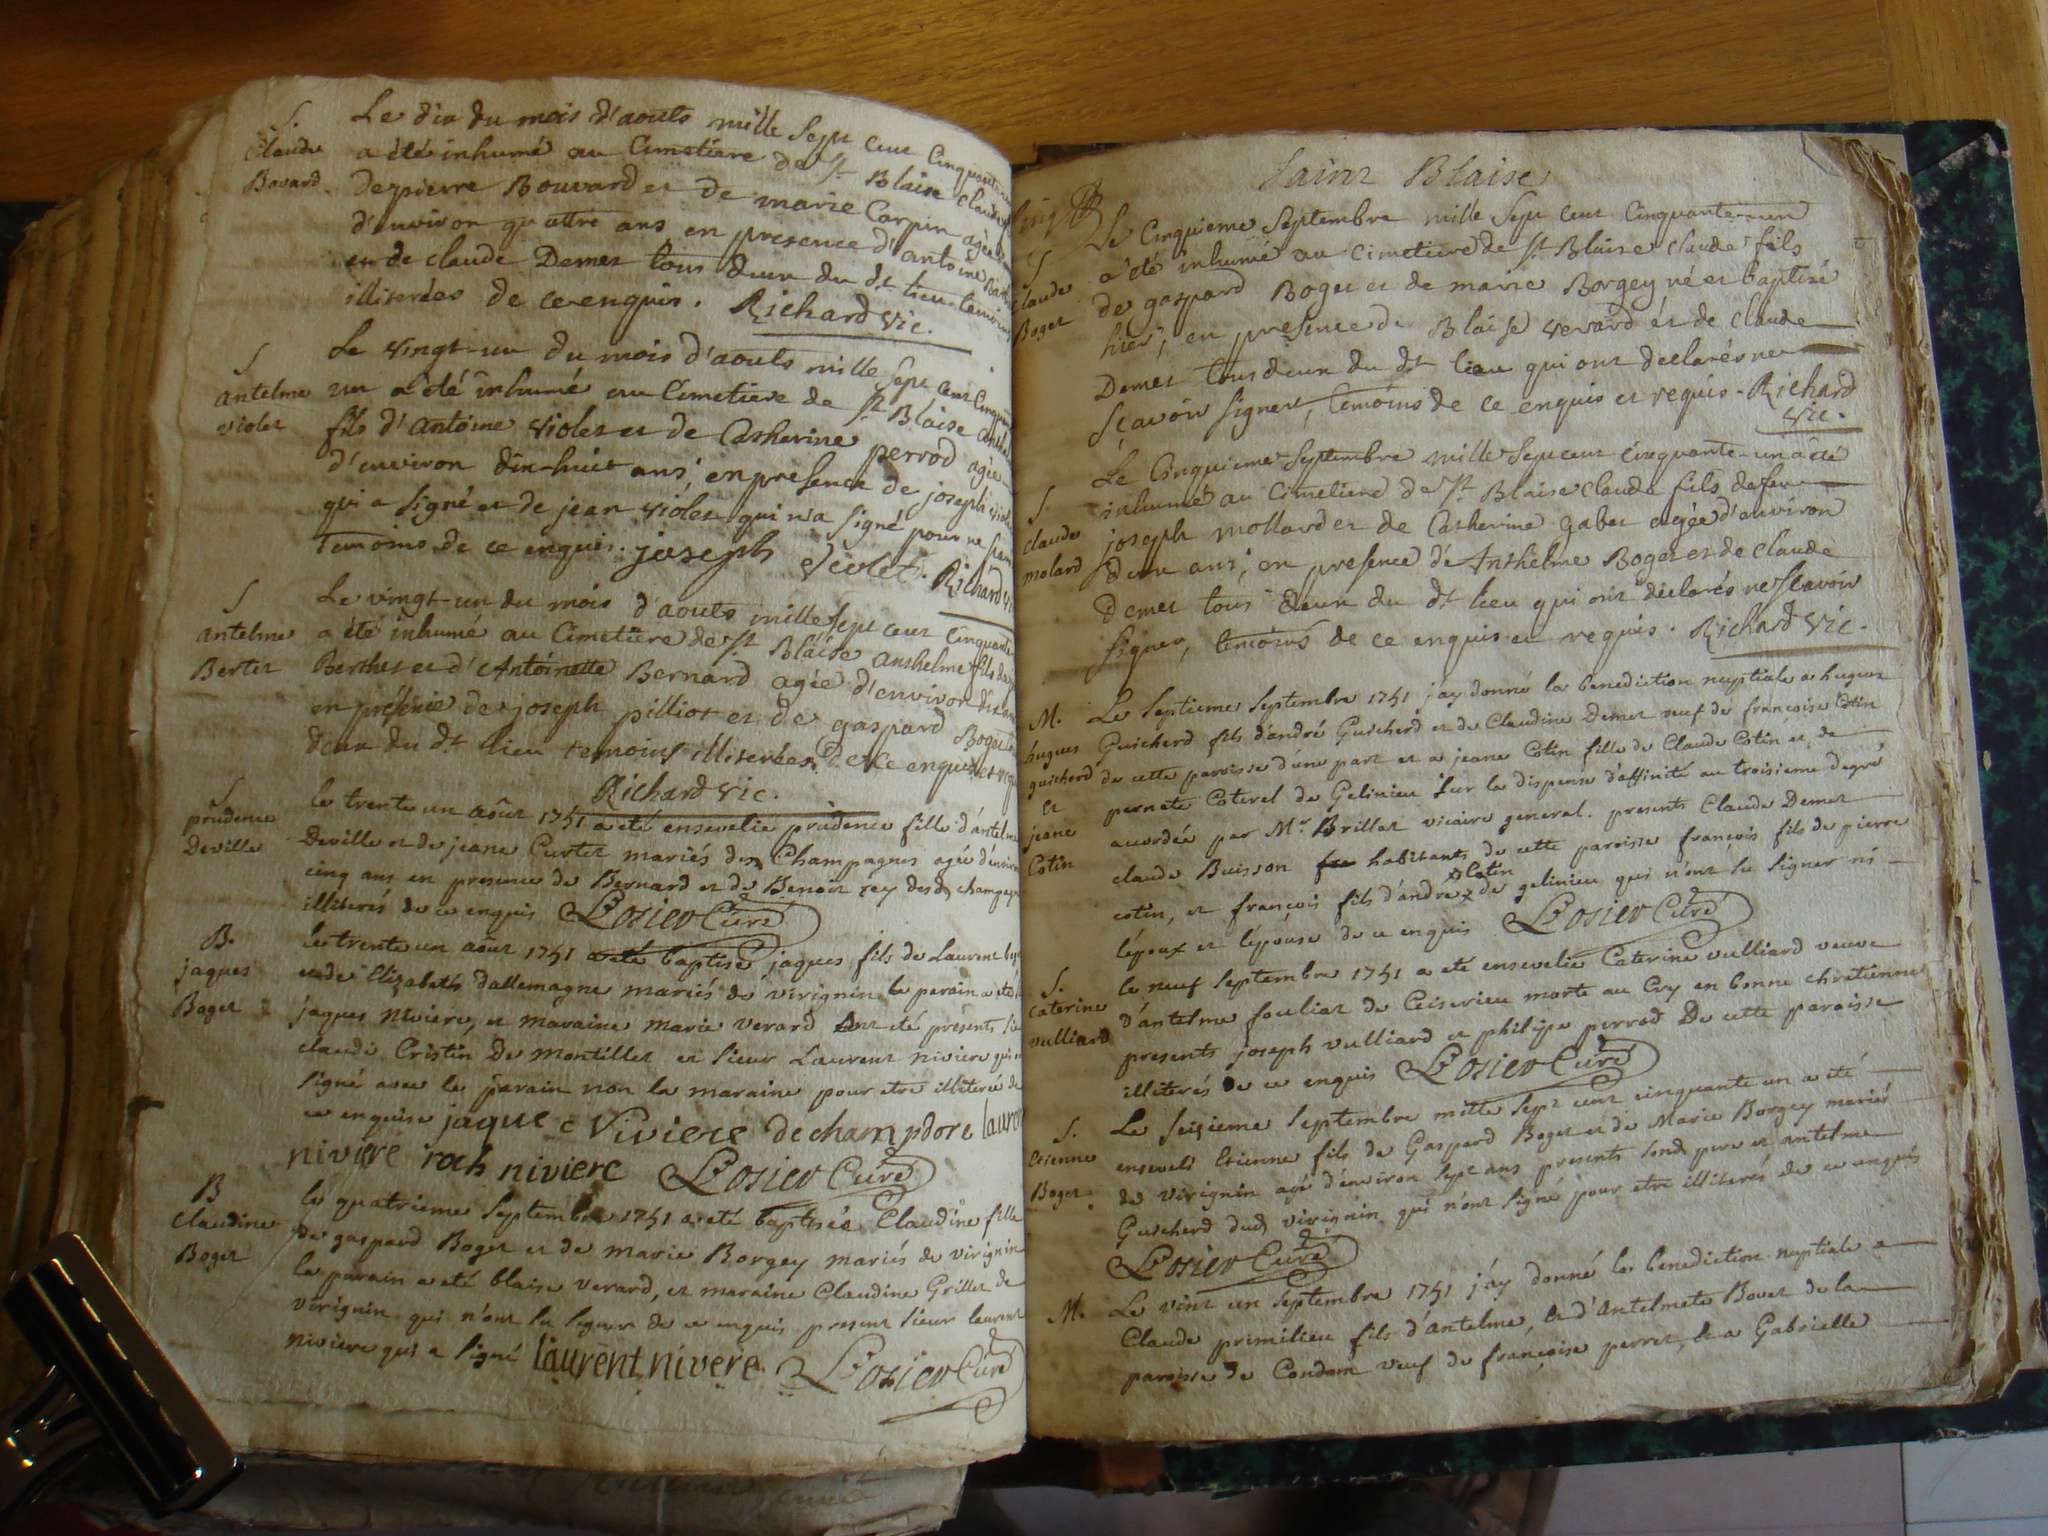 S.
Claude
Bovard
Le dix du mois d'aouts mille sept cent Cinquante
a été inhumé au Cimetiere de St Blaise Claude
de pierre Bouvard et de marie Carpin agée
d'environ quattre ans en presence d'antoine
et de claude Demet tous deux du dt lieu temoins
illiterées de ce enquis. Richard vic.
S
antelme
violet
Le vingt-un du mois d'aouts mille sept cent Cinquante
un a été inhumé au Cimetiere de St Blaise
fils d'Antoine violet et de Catherine perrod agée
d'environ dix-huit ans, en presence de joseph violet
qui a signé et de jean violet qui n'a signé pour ne
temoins de ce enquis. joseph violet. Richard
S
antelme
Bertet
Le vingt-un du mois d'aouts mille sept cent Cinquante
a été inhumé au Cimetiere de St Blaise anthelme fils
Berthet et d'Antoinette Bernard agée d'environ
en présence de joseph pilliot et de gaspard Boget
deux du dt lieu temoins illiterées de ce enquis
Richard vic.
S
prudence
Deville
le trente un août 1751 a eté ensevelie prudence fille d'antelme
Deville et de jeane Curtet mariés de Champagne agée d'environ
cinq ans en presence de Bernard et de Benoit rey desd
illiterés de ce enquis Losier Curé
B.
jaques
Boget
le trente un août 1751 a eté baptisé jaques fils de Laurent
et de Elizabeth dallemagne mariés de virignin le parain a eté
jaques niviere, et maraine marie verard ont eté presents
claude Cristin De montillet et sieur Laurent niviere qui
signé avec le parain non la maraine pour etre illiterée de
ce enquise jaque Niviere de champdore
niviere roch niviere Losier Curé
B
Claudine
Boget
le quatrieme septembre 1751 a eté baptisée Claudine fille
de gaspard Boget et de marie Borgey mariés de virignin
le parain a eté blaise verard, et maraine Claudine Grillet de
virignin qui n'ont su signer de ce enquis present sieur laurent
niviere qui a signé laurent nivere Losier Curé
Saint Blaise
S
Claude
Boget
Le Cinquieme Septembre mille sept cent Cinquante-un
a été inhumé au cimetiere de St Blaise claude fils
de gaspard Boget et de marie Borgey né et baptisé
hier, en presence de Blaise verard et de claude
Demet tous deux du dt lieu qui ont declarés ne
sçavoir signer, temoins de ce enquis et requis - Richard
vic.
S
claude
molard
Le Cinquieme septembre mille sept cent cinquante-un a été
inhumé au cimetiere de St Blaise claude fils de feu
joseph mollard et de Catherine gabet agée d'environ
deux ans, en presence de Anthelme Boget et de claude
Demet tous deux du dt lieu qui ont declarés ne sçavoir
signer, temoins de ce enquis et requis. Richard vic.
M.
hugues
guicherd
et
jeane
Cotin
Le septieme septembre 1751 j'ay donné la benediction nuptiale a hugues
Guicherd fils d'andré Guicherd et de Claudine Demet veuf de françoise Cotin
de cette paroisse d'une part et a jeane Cotin fille de Claude Cotin et de
pernete Coterel de Gelinieu sur la dispense d'affinité au troisieme degré
accordée par Mr Brillat vicaire general. presents Claude Demet
claude Buisson habitants de cette paroisse françois fils de pierre
cotin, et françois fils d'andre Cotin de gelinieu qui n'ont su signer ni
l'époux et l'épouse de ce enquis Losier Curé
S.
Caterine
vulliard
le neuf septembre 1751 a eté ensevelie Caterine vulliard veuve
d'antelme fouliat de Ceiserieu morte au Cry en bonne chretienne
presents joseph vulliard et philipe perrod De cette paroisse
illiterés de ce enquis Losier Curé
S.
Etienne
Boget
Le seizieme septembre mille sept cent cinquante un a eté
enseveli Etienne fils de Gaspard Boget et de Marie Borgey mariés
de virignin agé d'environ sept ans presents sond pere et antelme
Guicherd dud virignin qui n'ont signé pour etre illiterés de ce enquis
Losier Curé
M.
Le vint un septembre 1751 j'ay donné la benediction nuptiale a
Claude primilieu fils d'antelme, et d'Antelmete Bovet de la
paroisse de Condom veuf de françoise perret, et a Gabrielle